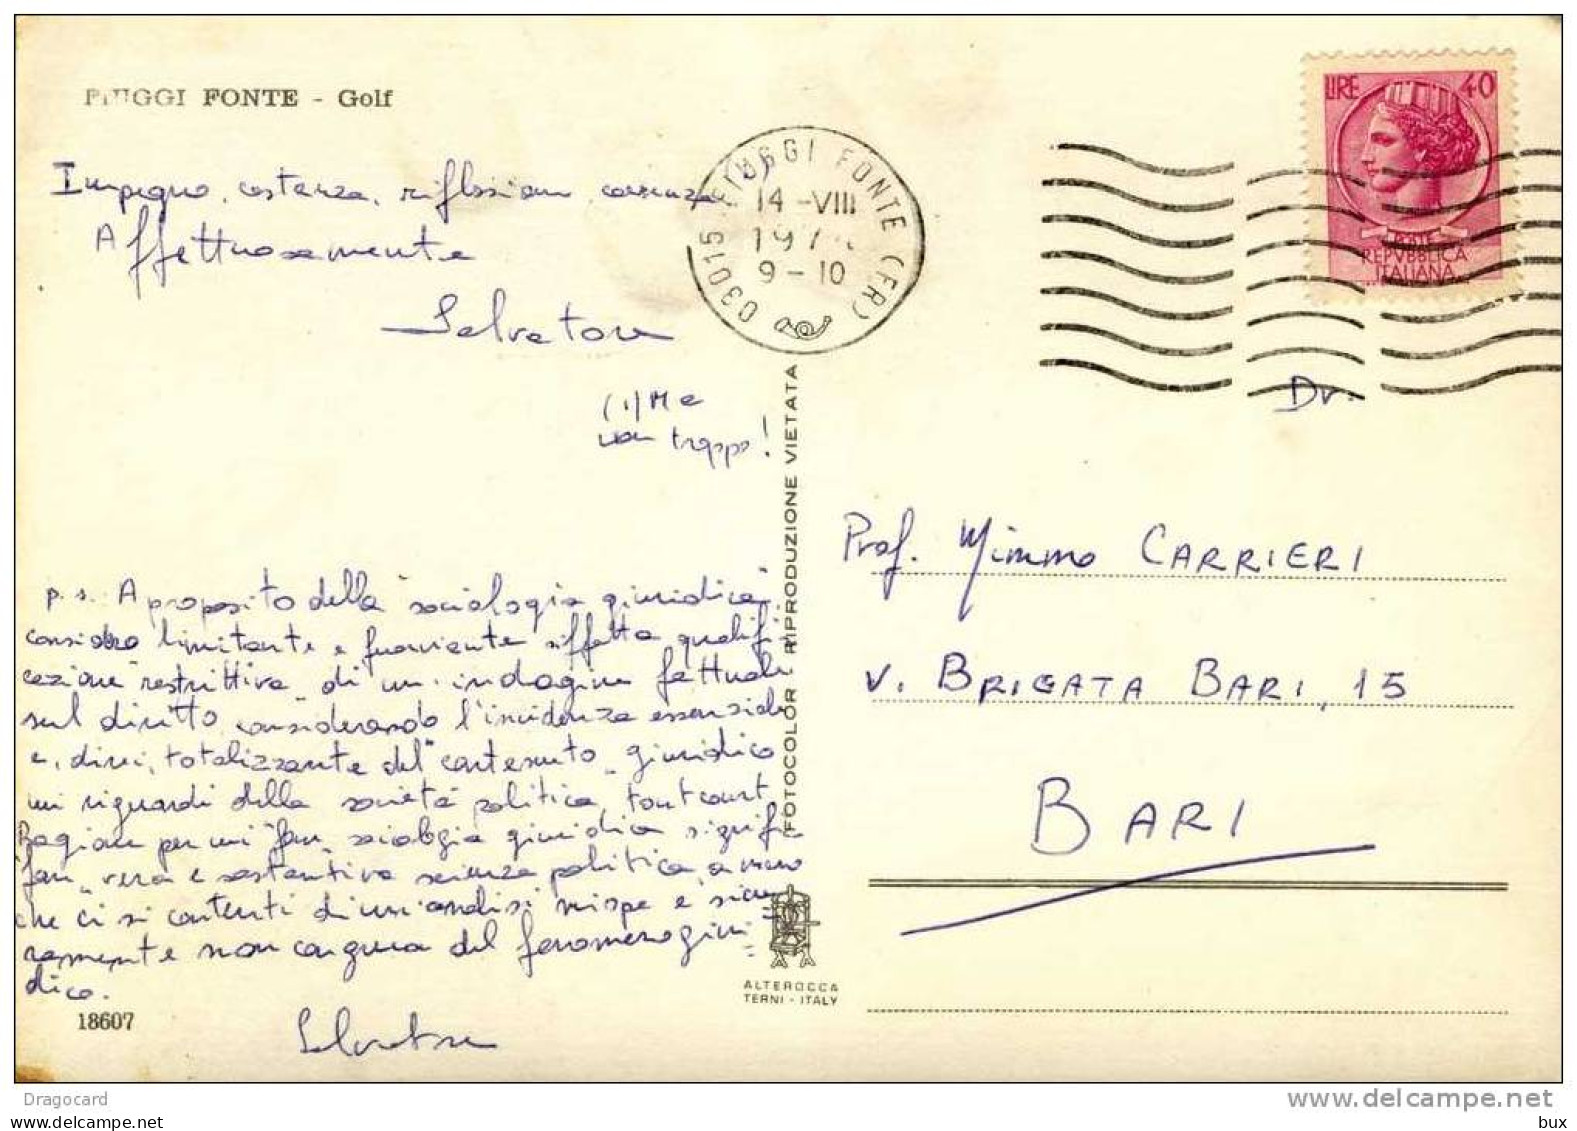 FIUGGI FONTE - Golf
Impegno, costanza, riflession
Affettuosamente
Salvatore
(1) Ma
non troppo!
p.s. A proposito della "sociologia giuridica",
considero limitante e fuorviante siffatta qualifi-
cazione restrittiva di un'indagine fattuale
sul diritto considerando l'incidenza essenziale
e, direi, totalizzante del "contenuto" giuridico
nei riguardi della società politica, tout court.
Ragion per cui "fare" sociologia giuridica signifi
"fare" vera e sostantiva scienza politica, a meno
che ci si contenti di un'analisi miope e sicu-
ramente non congrua del fenomeno giuri-
dico.
18607
Salvatore
FOTOCOLOR RIPRODUZIONE VIETATA
ALTEROCCA
TERNI - ITALY
03015 FIUGGI FONTE (FR)
14 -VIII
9 - 10
LIRE 40
REPVBBLICA
ITALIANA
Dr.
Prof. Mimmo CARRIERI
V. BRIGATA BARI, 15
BARI
Dragocard
www.delcampe.net
bux